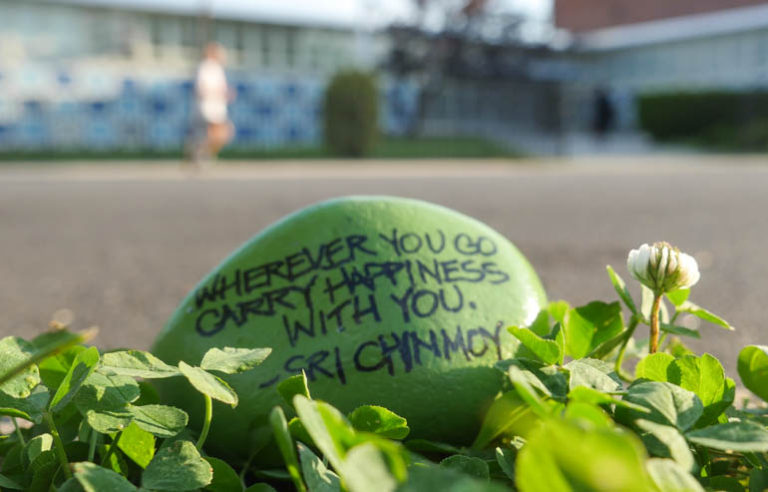 WHEREVER YOU GO
CARRY HAPPINESS
WITH YOU.
-SRI CHINMOY